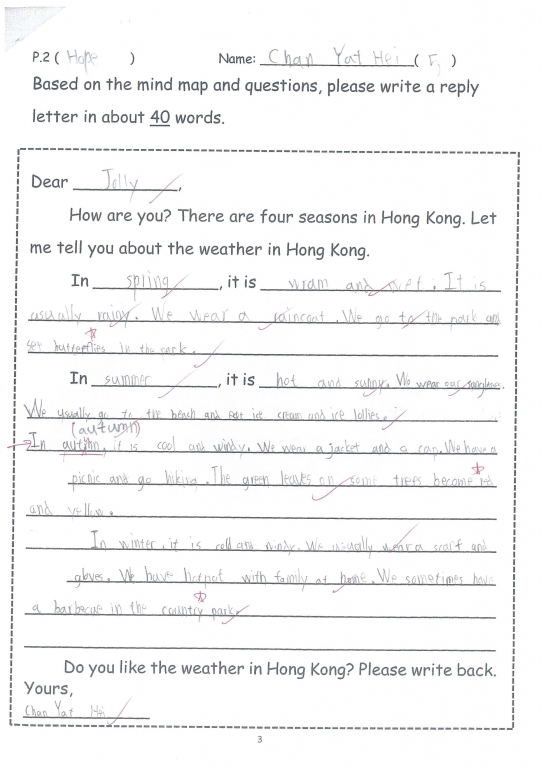 P.2 ( Hope )
Name: Chan Yat Hei ( 5 )
Based on the mind map and questions, please write a reply
letter in about 40 words.
Dear Jolly,
How are you? There are four seasons in Hong Kong. Let
me tell you about the weather in Hong Kong.
In spring, it is wram and wet. It is
usually rainy. We wear a raincoat. We go to the park and
see butterflies in the park.
In summer, it is hot and sunny. We wear our sunglasses.
We usually go to the beach and eat ice cream and ice lollies.
(autumn)
In autumn, it is cool and windy. We wear a jacket and a cap. We have a
picnic and go hiking. The green leaves on some trees become red
and yellow.
In winter, it is cold and windy. We usually wear a scarf and
gloves. We have hotpot with family at home. We sometimes have
a barbecue in the country park.
Do you like the weather in Hong Kong? Please write back.
Yours,
Chan Yat Hei
3